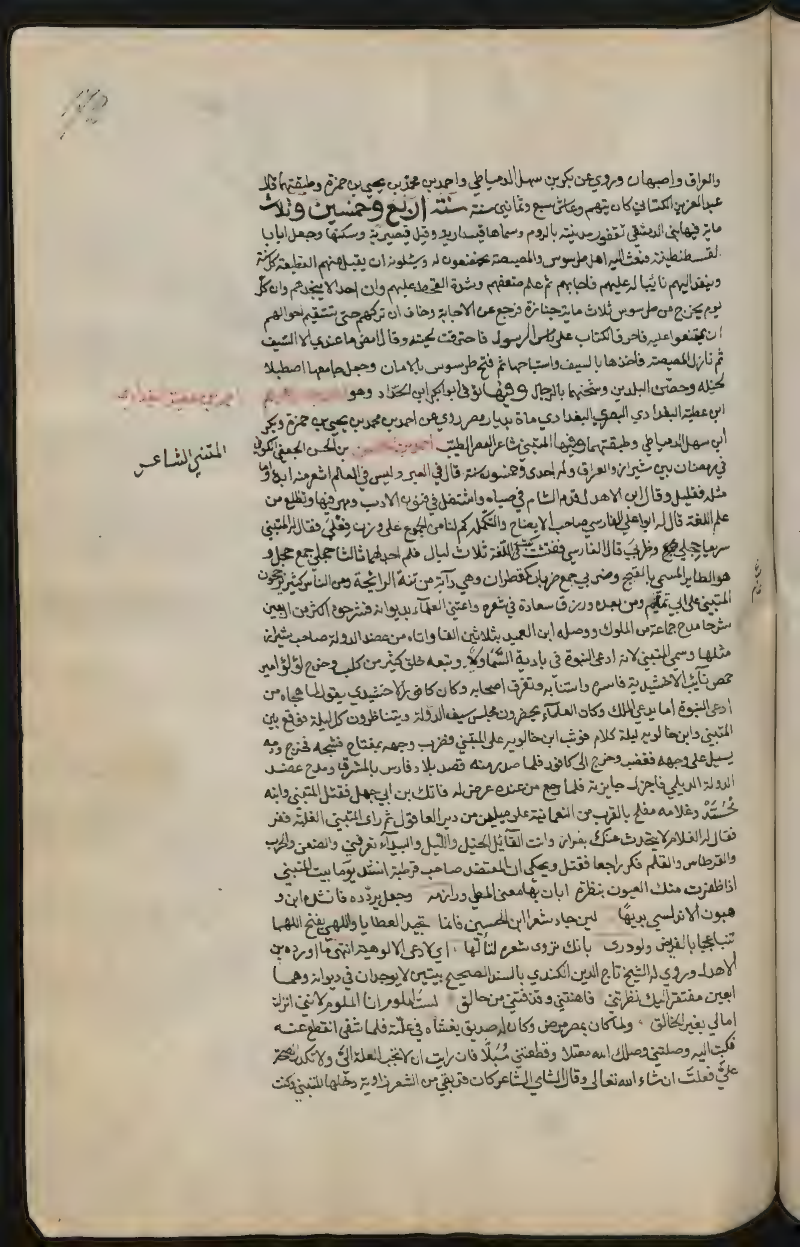 والعراق واصبهان وروي عن بكر بن سهل الدمياطي واحمد بن محمد بن يحيى بن حمزة وطبقتهما قال
عبد العزيز الكتاني كان يتهم وعاش سبع وثمانين سنة سنة اربع وخمسين وثلاث
ماية فيها بنى الدمستق نقفور مدينة بالروم وسماها قيسارية وقيل قيصرية وسكنها وجعل اباه با
لقسطنطينية فبعث اليه اهل طرسوس والمصيصة يخضعون له ويسئلونه ان يقبل منهم القطيعة كل سنة
وينفذ اليهم نايبا له عليهم فاجابهم ثم علم ضعفهم وشدة القحط عليهم وان احدا لا ينجدهم وان كل
يوم يخرج من طرسوس ثلاث ماية جنازة فرجع عن الاجابة وخاف ان تركهم حتى تستقيم احوالهم
ان يمتنعوا عليه فاحرق الكتاب على راس الرسول فاحترقت لحيته وقال امض ما عندي الا السيف
ثم نازل المصيصة فاخذها بالسيف واستباحها ثم فتح طرسوس بالامان وجعل جامعها اصطبلا
لخيله وحصن البلدين وشحنهما بالرجال وفيها توفي ابو بكر ابن الحداد وهو
ابن عطية البغدادي البصري البغدادي مات بديار مصر روى عن احمد بن محمد بن يحيى بن حمزة وبكر
ابن سهل الدمياطي وطبقتهما وفيها المتنبي شاعر العصر ابو الطيب احمد بن الحسين بن الحسن الجعفي الكوفي
المتنبي الشاعر
في رمضان بين شيراز والعراق وله احدى وخمسون سنة قال في العبر وليس في العالم اشعر منه ابدا واما
مثله فقليل وقال ابن الاهدل قدم الشام في صباه واشتغل في فنون الادب ومهر فيها وتطلع من
علم اللغة قال له ابو علي الفارسي صاحب الايضاح والتكمل كم لنا من الجموع على وزن فعلى فقال له المتنبي
سريعا حجلى وظربى قال الفارسي ففتشت كتب اللغة ثلاث ليال فلم اجد لهما ثالثا حجلى جمع حجل و
هو الطاير المسمى بالقبج وضربى جمع ضربان كقطران وهي دابة منتنة الرائحة ومن الناس كثير يرجحون
المتنبي على ابي تمام ومن بعده ورزق سعادة في شعره واعتنى العلماء بديوانه فشرحوه اكثر من اربعين
شرحا مدح جماعة من الملوك ووصله ابن العميد بثلاثين الفا واتاه من عضد الدولة صاحب شيراز
مثلها وسمي المتنبي لانه ادعى النبوة في بادية السماوة وتبعه خلق كثير من كلب وخرج لؤلؤ امير
حمص نايب الاخشيدية فاسره واستتابه وتفرق اصحابه وكان كافور الاخشيدي يقول لما هجاه من
ادعى النبوة اما يدعي الملك وكان العلماء يحضرون مجلس سيف الدولة ويتناظرون كل ليلة فوقع بين
المتنبي وابن خالويه ليلة كلام فوثب ابن خالويه على المتنبي فضرب وجهه بمفتاح فشجه فخرج ودمه
يسيل على وجهه فغضب وخرج الى كافور فلما صدر منه قصد بلاد فارس بالمشرق ومدح عضد
الدولة الديلمي فاجزل جايزته فلما رجع من عنده عرض له فاتك بن ابي جهل فقتل المتنبي وابنه
محسد وغلامه مفلح بالقرب من النعمانية على ميلين من دير العاقول ثم راى المتنبي الغلبة ففر
فقال له الغلام لا يتحدث عنك بفرار وانت القايل الخيل والليل والبيداء تعرفني والضعن والحرب
والقرطاس والقلم فكر راجعا فقتل ويحكى ان المعتضد صاحب قرطبة انشد يوما بيت المتنبي
اذا ظفرت منك العيون بنظرة اباث بها معنى المطي ورازمه وجعل يردده فانشده ابن و
هبون الاندلسي بديها لين جاد شعر ابن الحسين فانما تجيد العطايا واللهى تفتح اللها
تنبا عجبا بالقريض ولو درى بانك تروي شعره لتالها اي لادعى الالوهية انتهى ما اورده بن
الاهدل وروي له الشيخ تاج الدين الكندي بالسند الصحيح بيتين لا يوجدان في ديوانه وهما
ابعين مفتقر اليك نظرتني فاهنتني وقذفتني من حالق لست الملوم انا الملوم لانني انزلت
امالي بغير الخالق ولما كان بمصر مرض وكان له صديق يغشاه في علته فلما شفي انقطع عنه
فكتب اليه وصلتني وصلك الله معتلا وقطعتني مبلا فان رايت ان لا تحبب العلة الي ولا تكدر الصحة
علي فعلت ان شاء الله تعالى وقال النامي الشاعر كان قد بقي من الشعر زاوية دخلها المتنبي وكنت